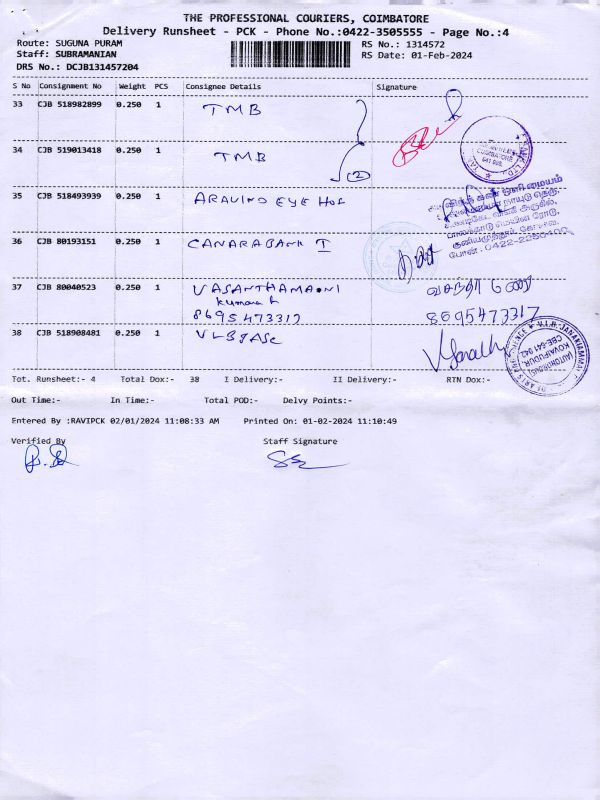 THE PROFESSIONAL COURIERS, COIMBATORE
Delivery Runsheet - PCK - Phone No.:0422-3505555 - Page No.:4
Route: SUGUNA PURAM
RS No.: 1314572
Staff: SUBRAMANIAN
RS Date: 01-Feb-2024
DRS No.: DCJB131457204
S No Consignment No Weight PCS Consignee Details Signature
33 CJB 518982899 0.250 1 TMB
34 CJB 519013418 0.250 1 TMB
2
35 CJB 518493939 0.250 1 ARAVIND EYE HOS
36 CJB 80193151 0.250 1 CANARA BANK I
போன் : 0422-
37 CJB 80040523 0.250 1 VASANTHAMANI
Kumar
8695473317
8695473317
38 CJB 518908481 0.250 1 VLBJASC
V.L.B. JANAKIAMMAL
(AUTONOMOUS)
KOVAIPUDUR
CBE-641 042
Tot. Runsheet:- 4 Total Dox:- 38 I Delivery:- II Delivery:- RTN Dox:-
Out Time:- In Time:- Total POD:- Delvy Points:-
Entered By :RAVIPCK 02/01/2024 11:08:33 AM Printed On: 01-02-2024 11:10:49
Verified By Staff Signature